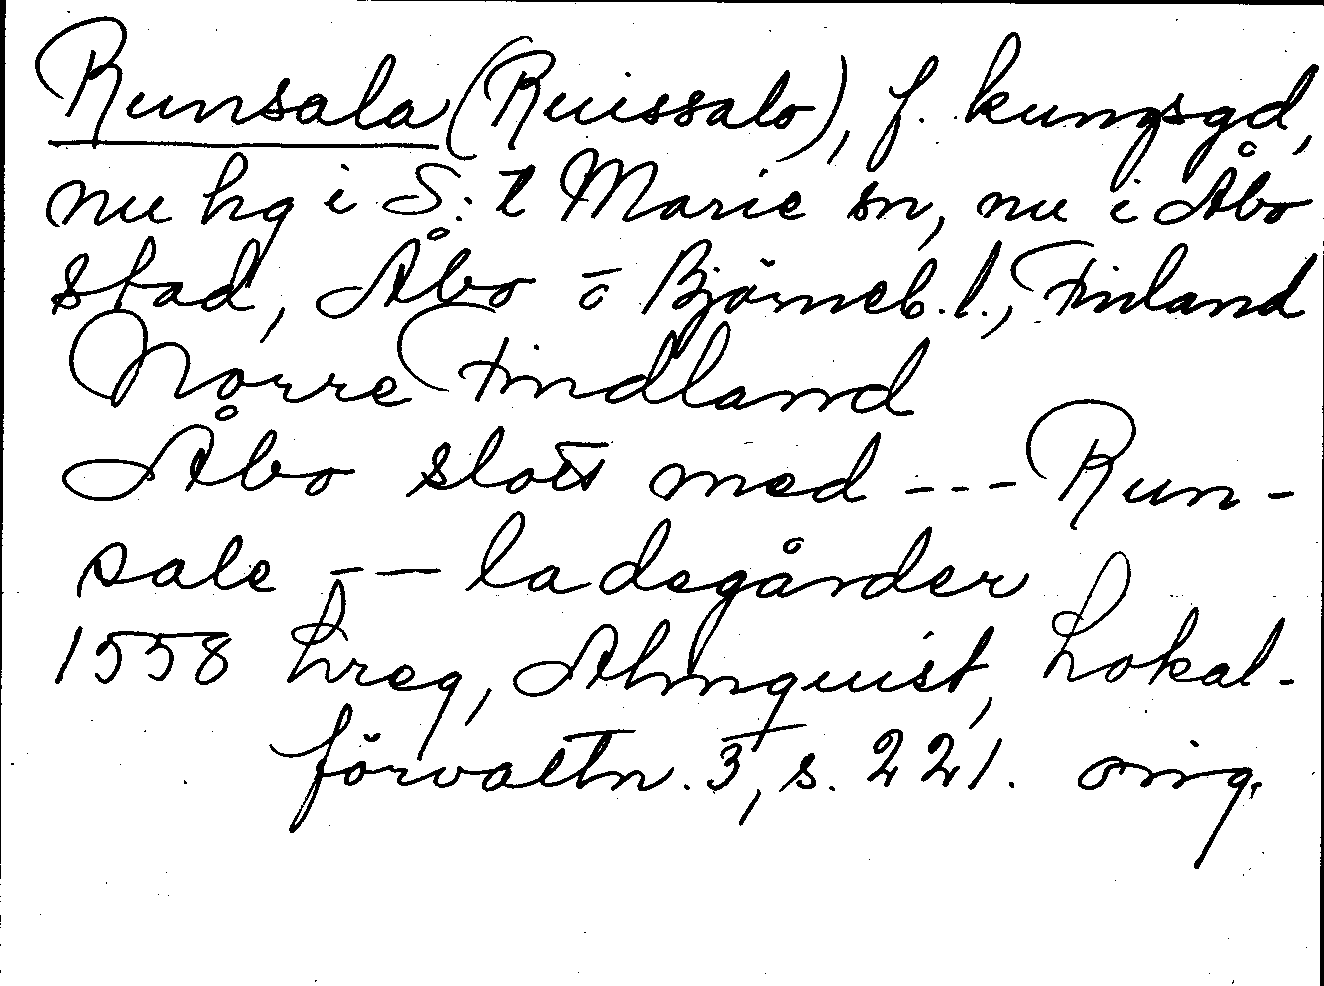 Runsala (Ruissalo), f. kungsgd,
nu hg i S:t Marie sn, nu i Åbo
stad, Åbo o Björneb. l., Finland
Norre Findland
Åbo slott med --- Run-
sale -- ladegårder
1558 Lreg, Almquist, Lokal-
förvaltn. 3, s. 221. orig.